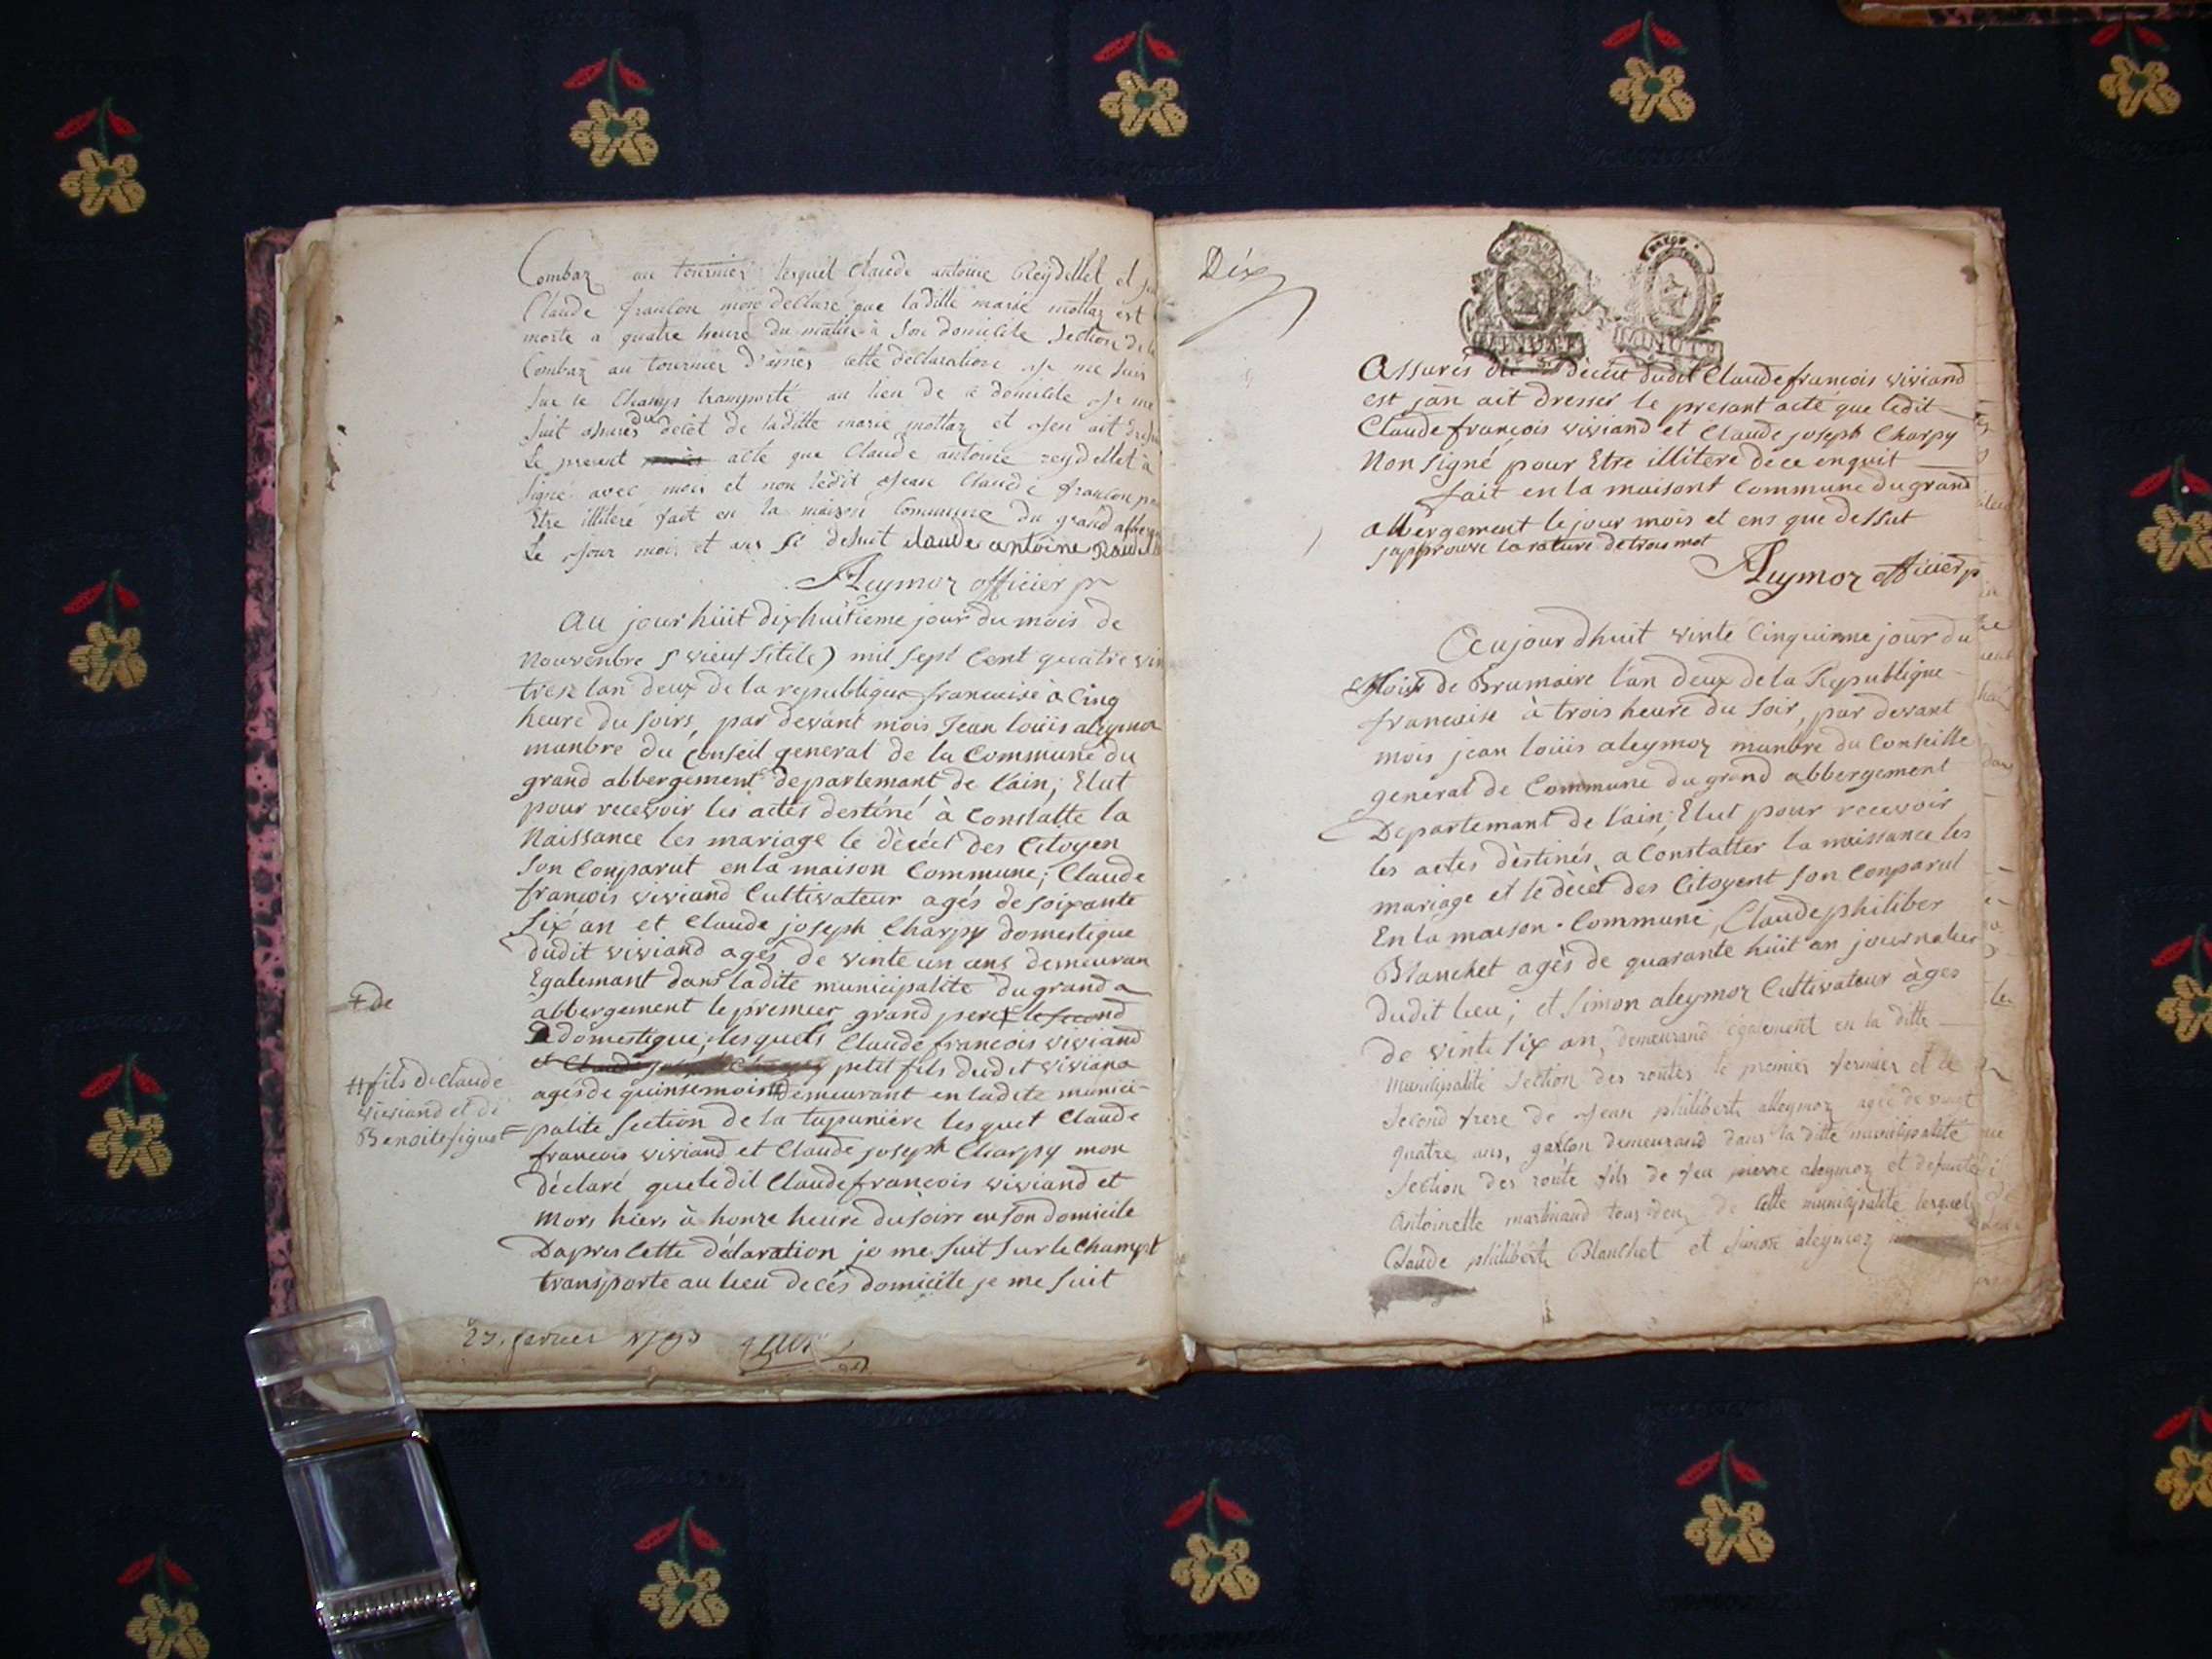 Combaz au tournier lesquel Claude antoine Reydellet et
Claude françon mon declare que laditte marie mottaz est
morte a quatre heure du matin à son domicile Section de la
Combaz au tournier d'apres cette declaration Je me suis
sur le Champs transporté au lieu de ce domicile Je me
suit assurés du decét de laditte marie mottaz et Jen ait
Le present acte que Claude antoine reydellet à
signé avec mois et non ledit Jean Claude françon
Etre illiteré fait en la maison Commune du grand
Le Jour mois et ans desuit claude antoine
Aleymoz officier p
Au jour huit dix huitieme jour du mois de
Nouvenbre (vieux Stile) mil sept Cent quatre
treze lan deux de la republique francaise à Cinq
heure du soirs, par devant mois Jean louis aleymoz
manbre du Conseil general de la Commune du
grand abbergement departemant de l'ain; Elut
pour recevoir les actes destiné à Constatte la
Naissance les mariage le décét des Citoyen
Son Conparut en la maison Commune; Claude
francois viviand Cultivateur agés de soixante
Six an et Claude joseph Charpy domestique
dudit viviand agés de vinte un ans demeuran
Egalemant dans ladite municipalité du grand a
+ de
abbergement le premier grand pere + le second
domestique; lesquels Claude francois viviand
et Claude petit fils dudit viviand
# fils de Claude
viviand et de
Benoite figuet =
agés de quinse mois # demeurant en ladite munici-
palite Section de la tupuniere lesquet Claude
francois viviand et Claude joseph Charpy mon
déclaré que ledit Claude francois viviand et
Mors hiers à honze heure du soirs en son domicile
Dapres Cette déclaration je me suit sur le Champt
transporte au lieu de cés domicile je me suit
27. Janvier 1793
Dix
MINUTE MINUTE
Assurés du décét dudit Claude francois viviand
est jan ait dresser le presant acte que ledit
Claude francois viviand et Claude joseph Charpy
Non signé pour Etre illitere de ce enquit
fait en la maisont Commune du grand
abbergement le jour mois et ens que dessut
japprouve la rature de trois mot
Aleymoz officier p
Aujourdhuit vinte Cinquinme jour du
Mois de Brumaire l'an deux de la Republique
francaise à trois heure du soir, par devant
mois jean louis aleymoz manbre du Conseille
general de Commune du grand abbergement
Departemant de l'ain; Elut pour recevoir
les actes déstinés a Constatter la naissance les
mariage et le décét des Citoyent son Conparut
En la maison Commune; Claude philiber
Blanchet agés de quarante huit an journalier
dudit lieu; et Simon aleymoz Cultivateur àges
de vinte six an, demeurand également en la ditte
municipalité Section des routes le premier fermier et le
second frere de Jean philibert alleymoz agé de vingt
quatre ans, garson demeurand dans la ditte municipalité
Section des route fils de feu pierre aleymoz et defuncte
Antoinette martinand tous deux de cette municipalité lesquels
Claude philibert Blanchet et simon aleymoz